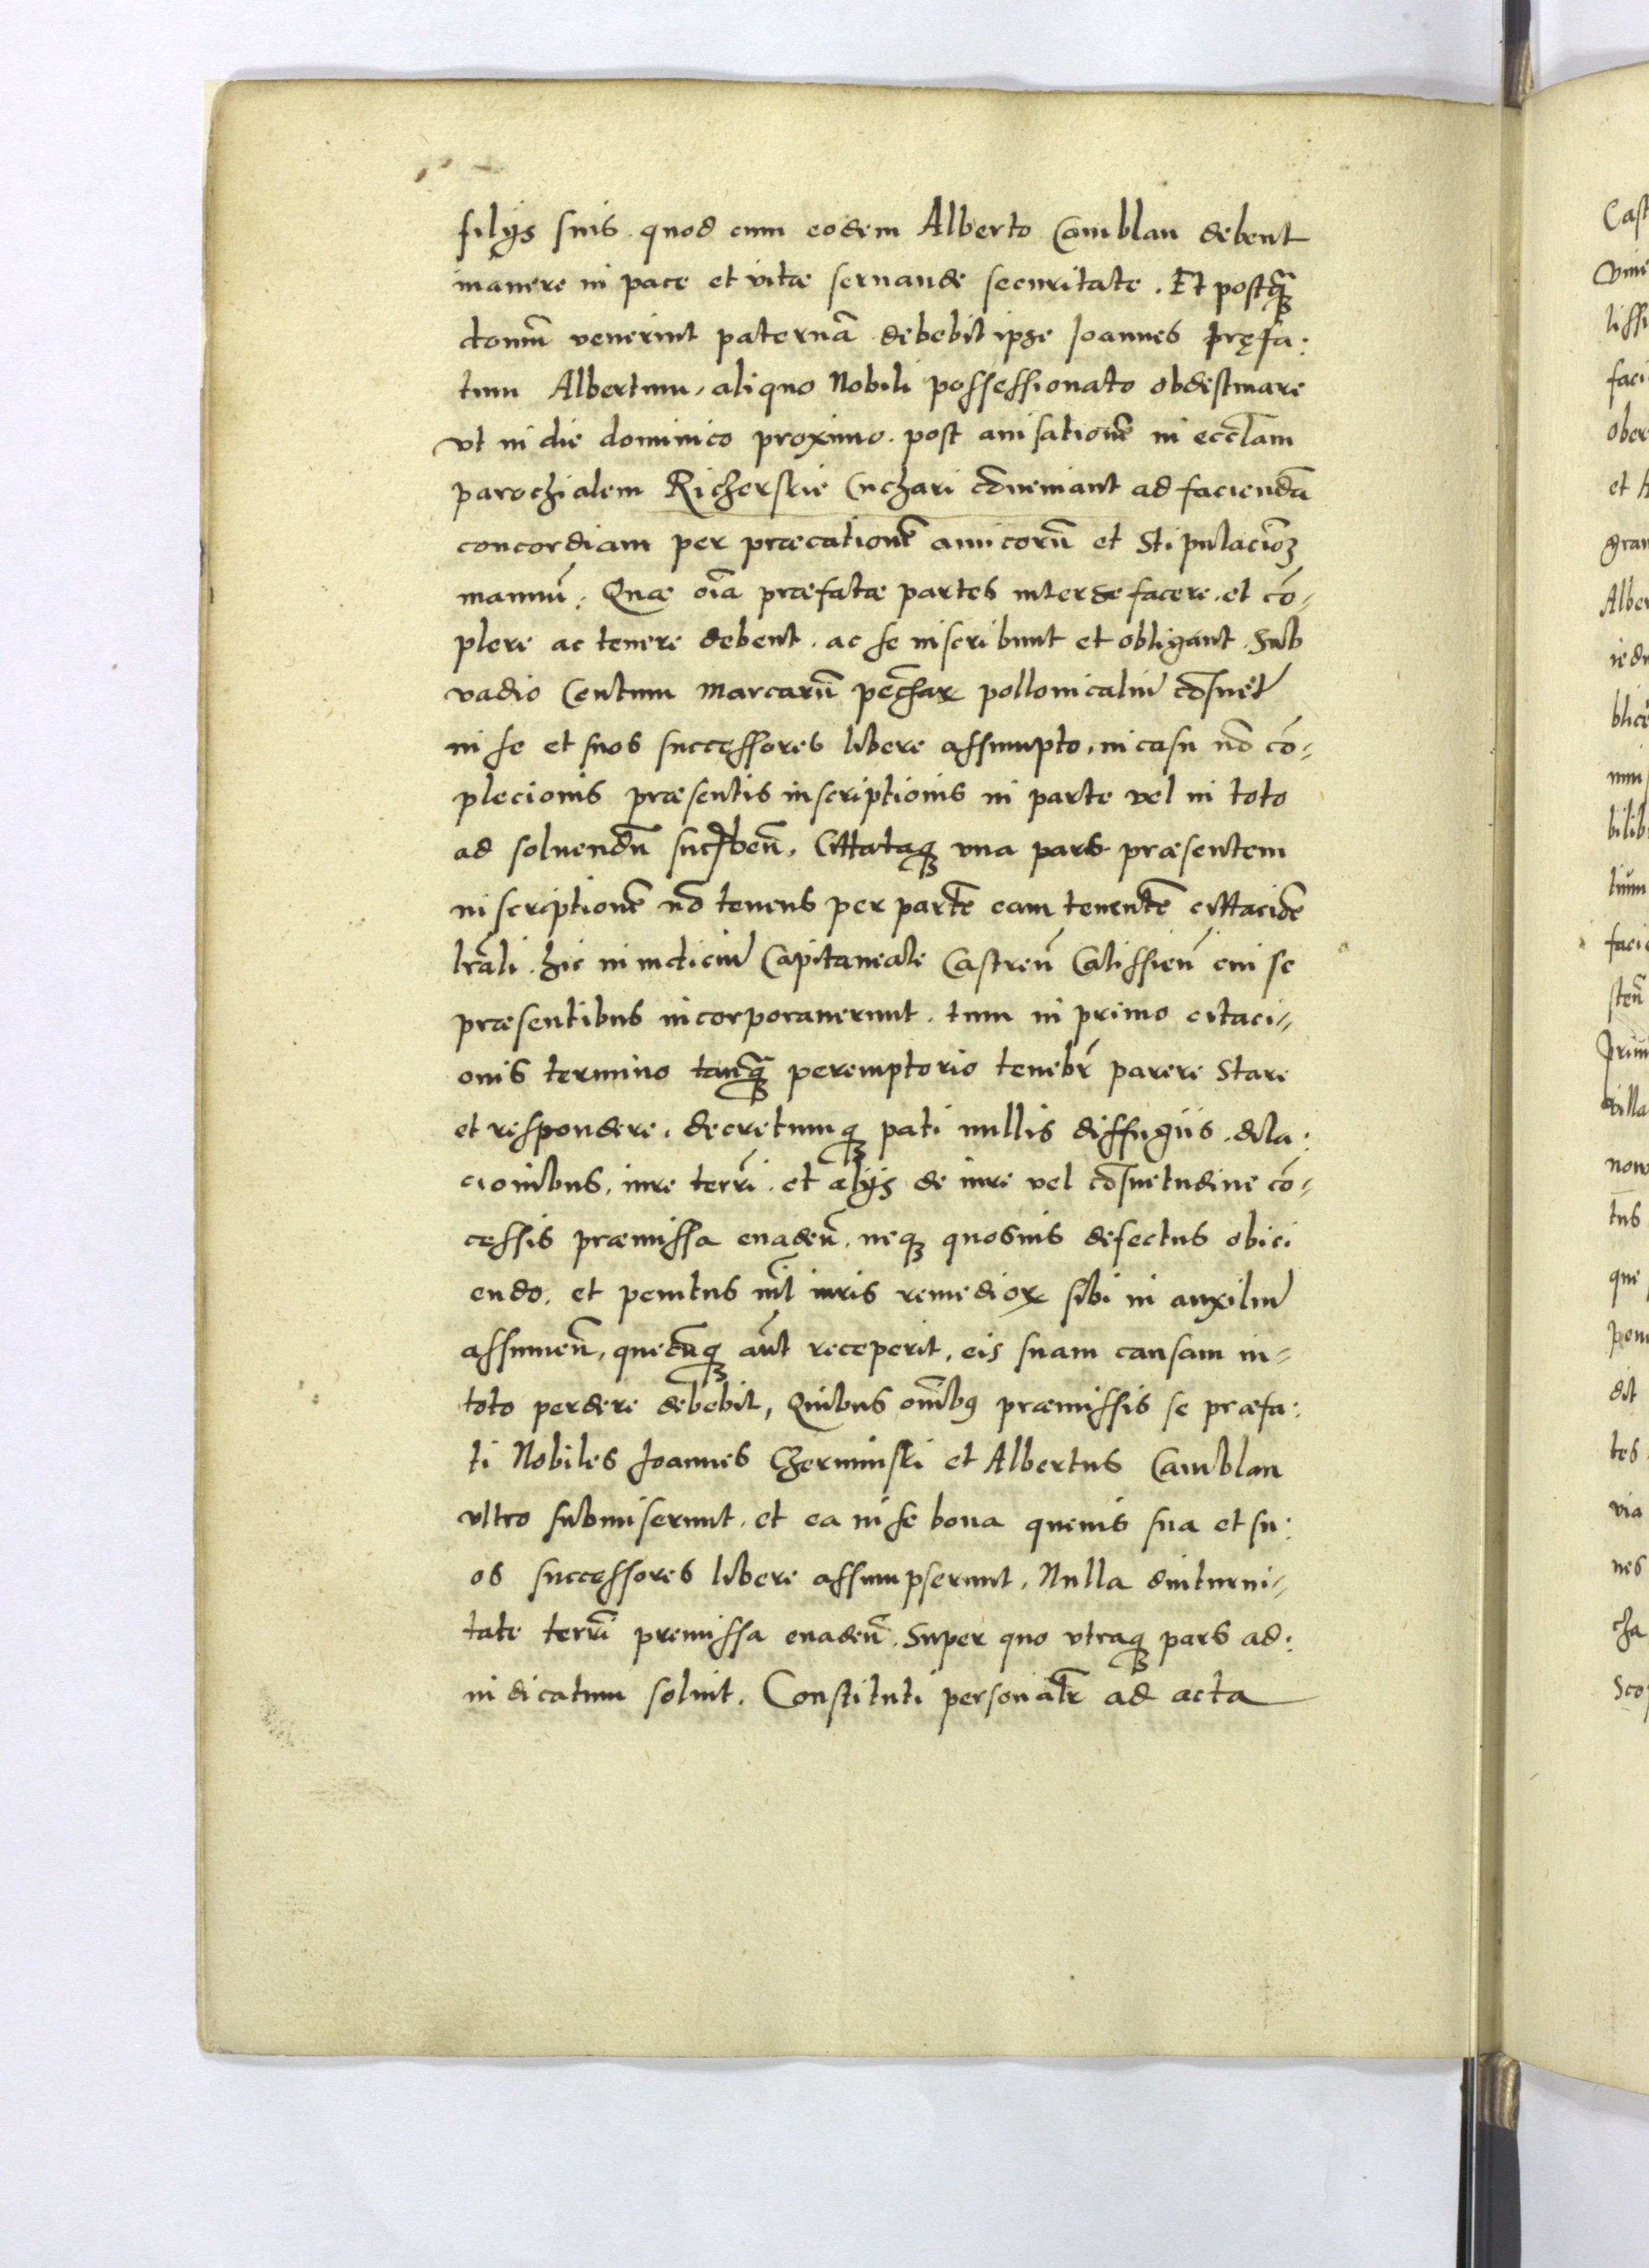 filijs suis. quod cum eodem Alberto Camblan debent
manere in pace et vitæ seruandę securitate. Et postq̃ȝ
domũ venerint paternã debebit ipse Joannes pręfa:
tum Albertum, aliquo Nobili possessionato obdestinare
vt in die dominico proximo. post auisationẽ in eccl̃am
parochialem Richerskie Cuchari cõueniant ad faciendã
concordiam per præcationẽ amicorũ et Stipulaciõȝ
manuũ: Quæ oĩa præfatæ partes inter se facere. et cõ-
plere ac tenere debent. ac se inscribunt et obligant. Sub
vadio Centum Marcarũ pecũiar pollonicaliũ cõsuet̃
in se et suos successores libere assumpto, in casu nõ cõ-
plecionis præsentis inscriptionis in parte vel in toto
ad soluendũ Cittataqȝ vna pars præsentem
inscriptionẽ nõ tenens per partẽ eam tenentẽ cittaciõe
lr̃ali. hic in iudiciũ Capitaneale Castreñ Calissieñ cui se
præsentibus incorporauerunt. tum in primo citaci-
onis termino tanq̃ȝ peremptorio tenebr̃ parere Stare
et respondere. decretumqȝ pati nullis diffugiis. dila:
cionibus. iure terr̃i. et alijs de iure vel cõsuetudine cõ-
cessis præmissa euadeñ. neqȝ quosuis defectus obici
endo. et penitus nil̃ iuris remedior sibi in auxiliũ
assumeñ, quecũqȝ aũt receperit, eis suam causam in-
toto perdere debebit, Quibus omĩbꝰ præmissis se præfa:
ti Nobiles Joannes Czerminski et Albertus Camblan
vltro submiserunt. et ea in se bona queuis sua et su:
os successores libere assumpserunt. Nulla diuturni-
tate terr̃i premissa euadeñ. Super quo vtraqȝ pars ad:
iudicatum soluit. Constituti personalr̃ ad acta